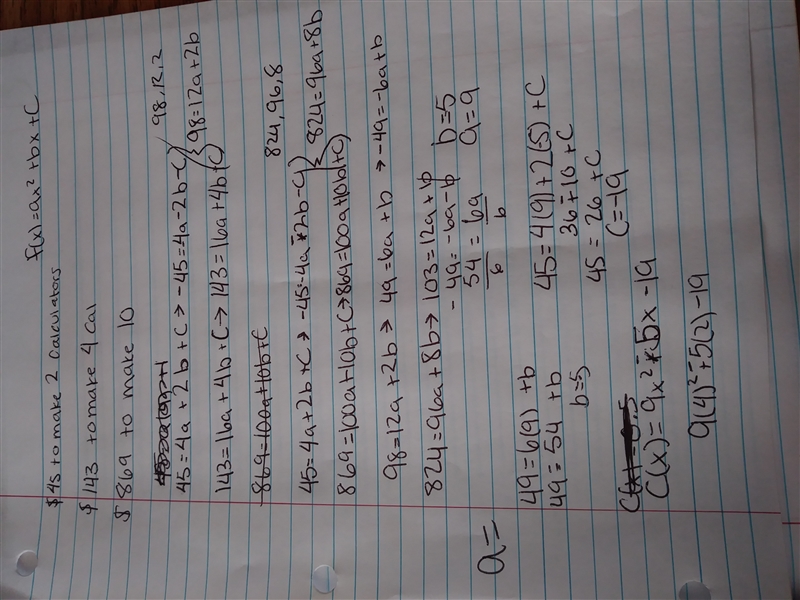 f(x) = ax² + bx + C
$45 to make 2 calculators
$143 to make 4 cal
$869 to make 10
98, 12, 2
45 = 4a + 2b + C → -45 = 4a - 2b - C } 98 = 12a + 2b
143 = 16a + 4b + C → 143 = 16a + 4b + C
869 = 100a + 10b + C
824, 96, 8
45 = 4a + 2b + C → -45 = -4a - 2b - C } 824 = 96a + 8b
869 = 100a + 10b + C → 869 = 100a + 10b + C
98 = 12a + 2b → 49 = 6a + b → -49 = -6a + b
824 = 96a + 8b → 103 = 12a + b
-49 = -6a - b
b = 5
54 = 6a
6 6
a = 9
a =
49 = 6(9) + b
49 = 54 + b
b = 5
45 = 4(9) + 2(5) + C
36 + 10 + C
45 = 26 + C
C = -19
C(x) = 9x² - 5x - 19
9(4)² + 5(2) - 19